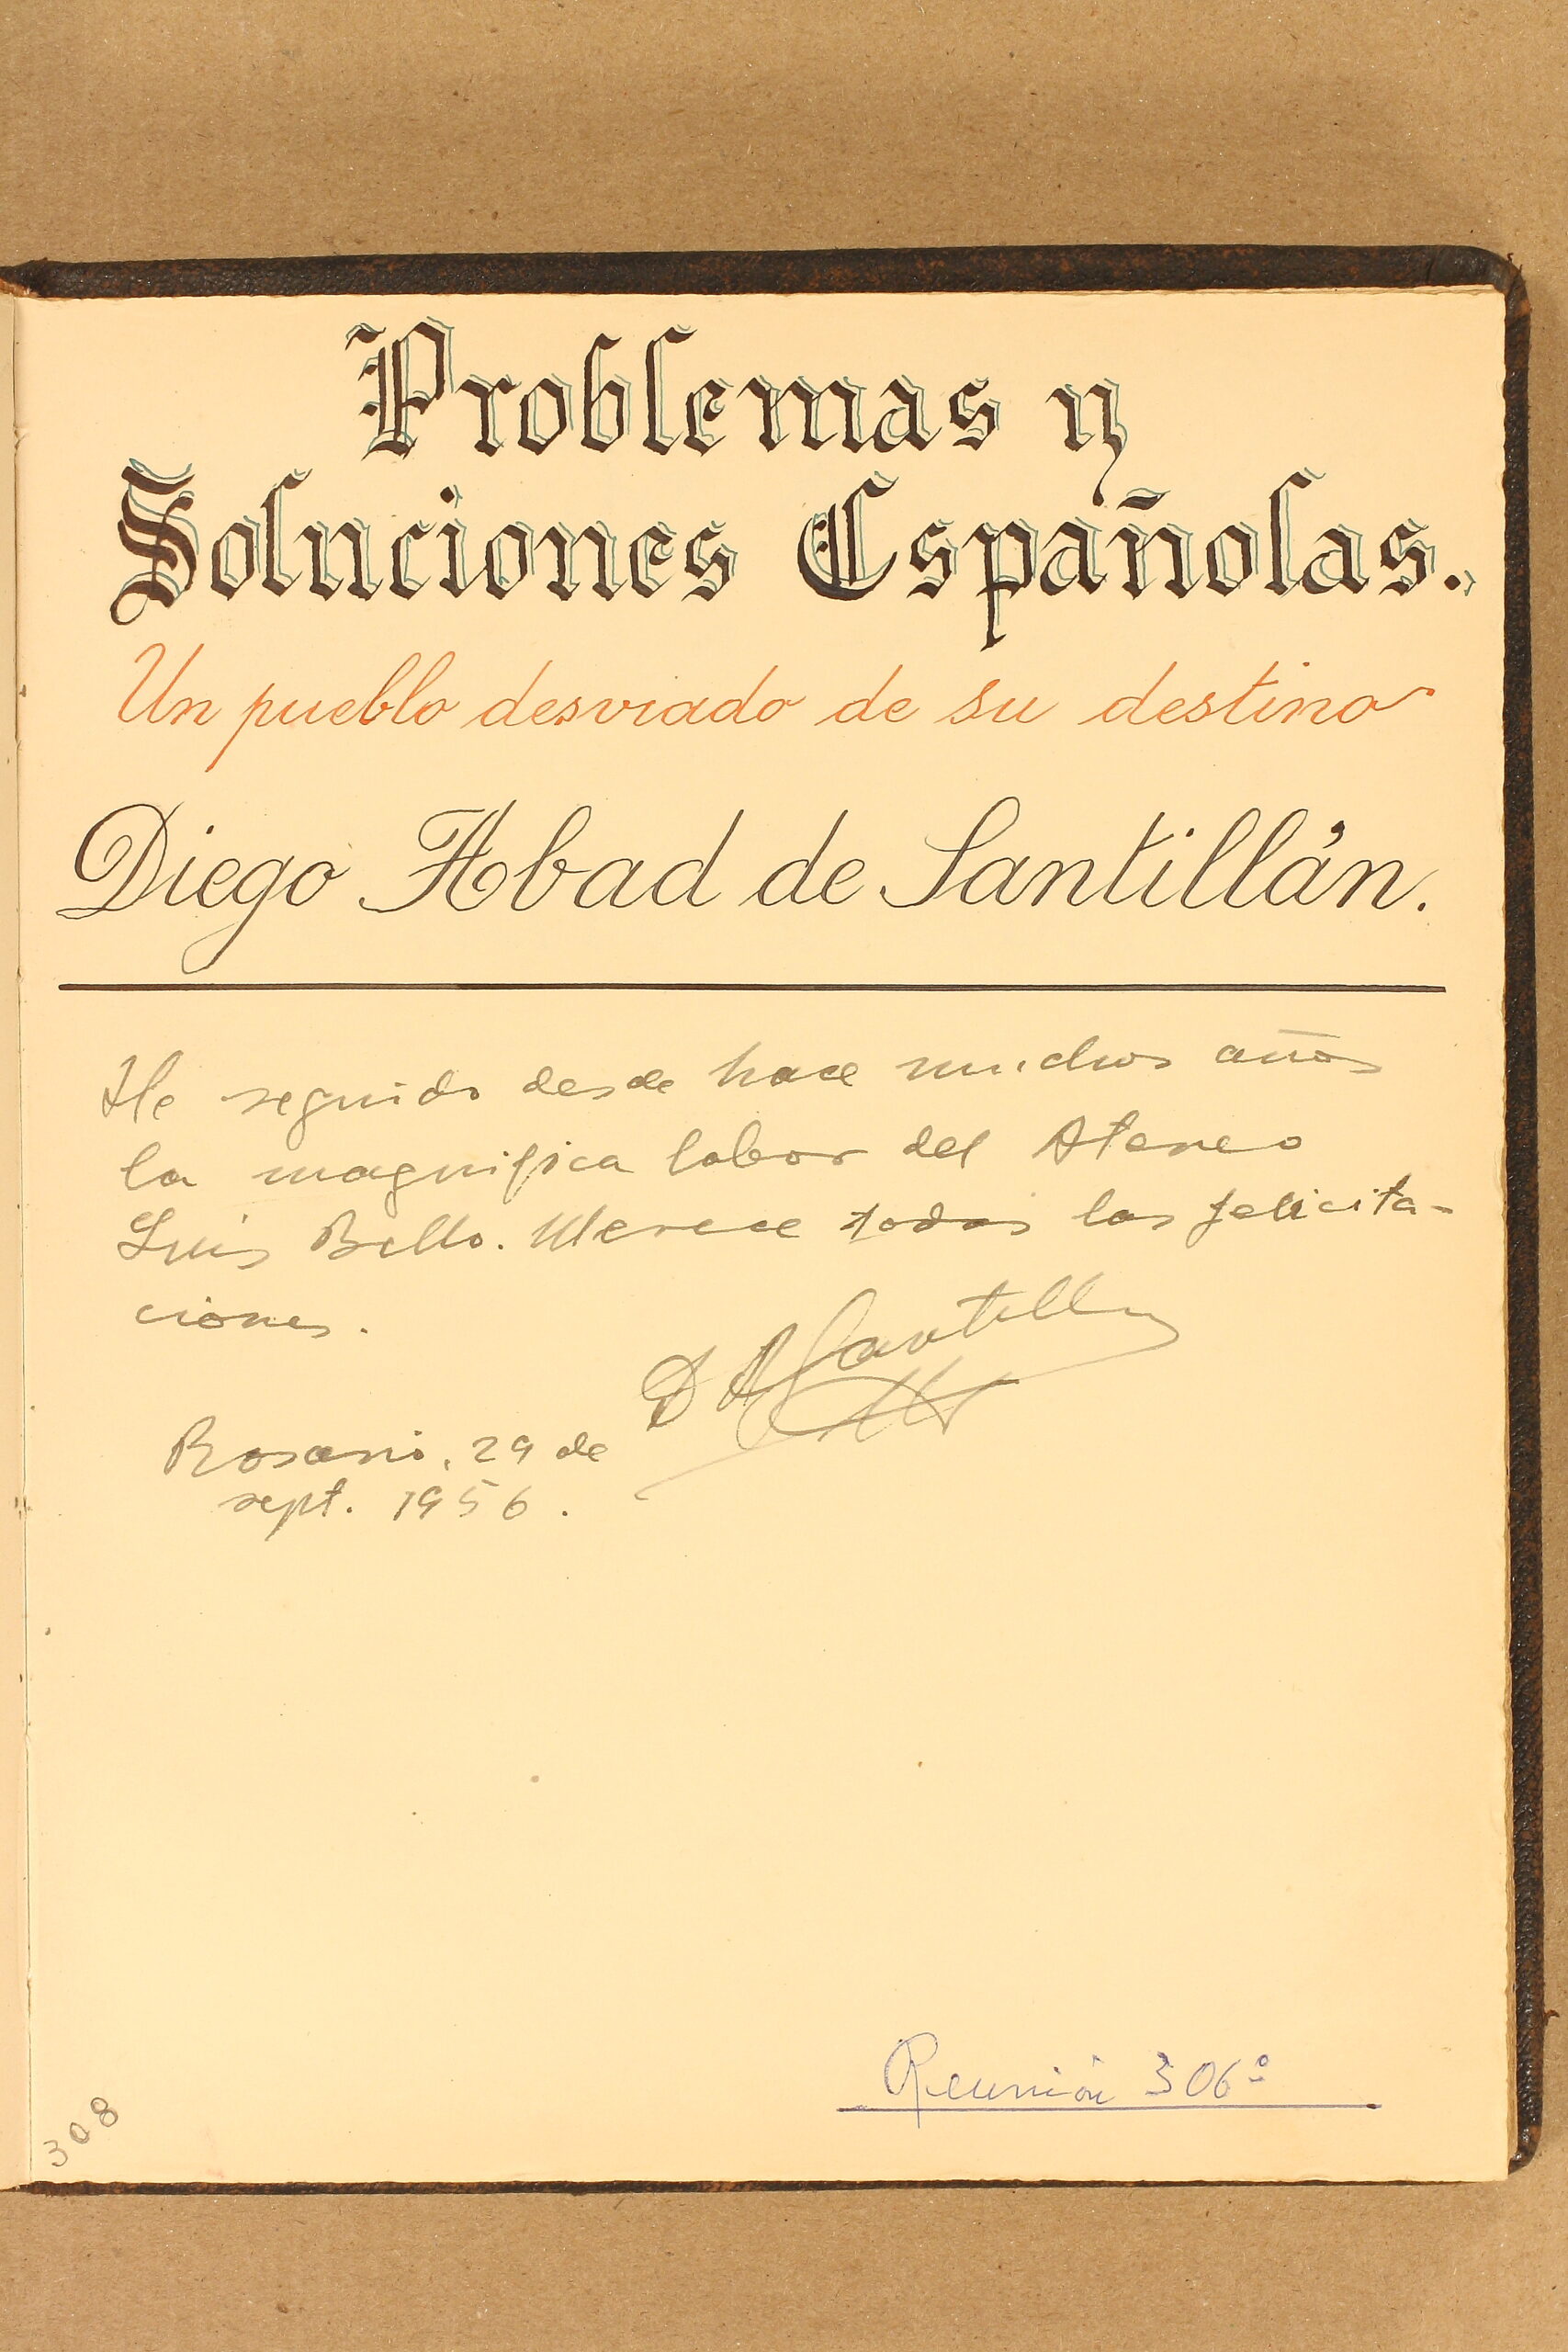 Problemas y
Soluciones Españolas.
Un pueblo desviado de su destino
Diego Abad de Santillán.
He seguido desde hace muchos años
la magnifica labor del Ateneo
Luis Bello. Merece todas las felicita-
ciones.
D A Santillan
Rosario, 29 de
sept. 1956.
Reunión 306º
308